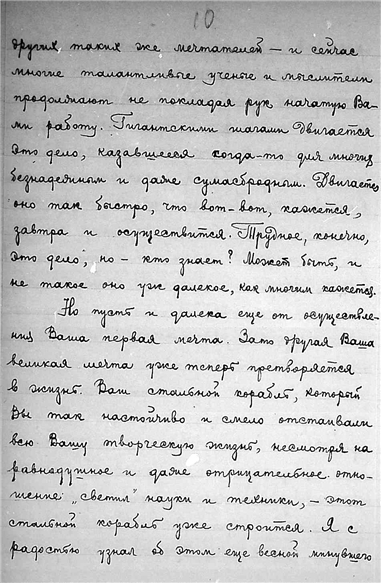 10
других таких же мечтателей — и сейчас
многие талантливые ученые и мыслители
продолжают не покладая рук начатую Ва-
ми работу. Гигантскими шагами двигается
это дело, казавшееся когда-то для многих
безнадежным и даже сумасбродным. Двигается
оно так быстро, что вот-вот, кажется,
завтра и осуществится. Трудное, конечно,
это дело, но – кто знает? Может быть, и
не такое оно уж далекое, как многим кажется.
Но пусть и далека еще от осуществле-
ния Ваша первая мечта. Зато другая Ваша
великая мечта уже теперь претворяется
в жизнь. Ваш стальной корабль, который
Вы так настойчиво и смело отстаивали
всю Вашу творческую жизнь, несмотря на
равнодушное и даже отрицательное отно-
шение „светил" науки и техники, – этот
стальной корабль уже строится. Я с
радостью узнал об этом еще весной минувшего